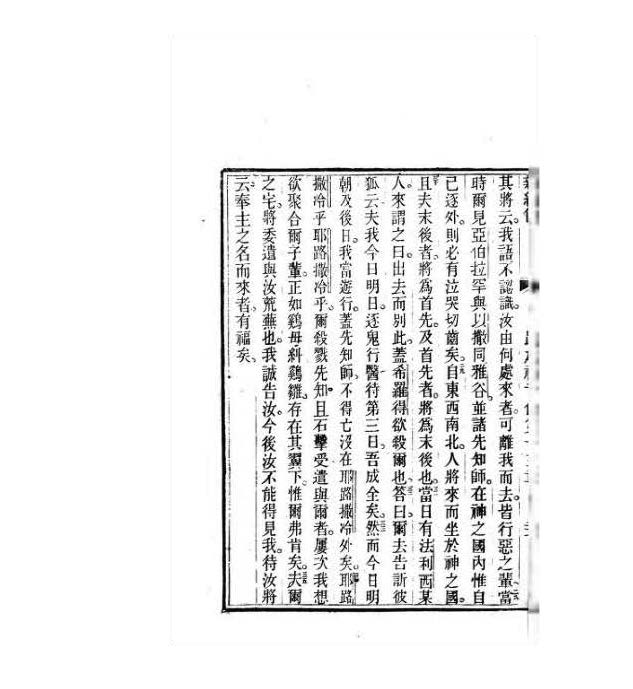 其將云我語不認識汝由何處來者可離我而去皆行惡之輩當
時爾見亞伯拉罕與以撒同雅谷並諸先知師在神之國內惟自
己逐外則必有泣哭切齒矣自東西南北人將來而坐於神之國
且夫末後者將為首先及首先者將為末後也當日有法利西某
人來謂之曰出去而別此蓋希羅得欲殺爾也答曰爾去告訴彼
狐云夫我今日明日逐鬼行醫待第三日吾成全矣然而今日明
朝及後日我當遊行蓋先知師不得亡沒在耶路撒冷外矣耶路
撒冷乎耶路撒冷乎爾殺戮先知且石擊受遣與爾者屢次我想
欲聚合爾子輩正如鷄母斜鷄雛存在其翼下惟爾弗肯矣夫爾
之宅將委遺與汝荒蕪也我誠告汝今後汝不能得見我待汝將
云奉主之名而來者有福矣